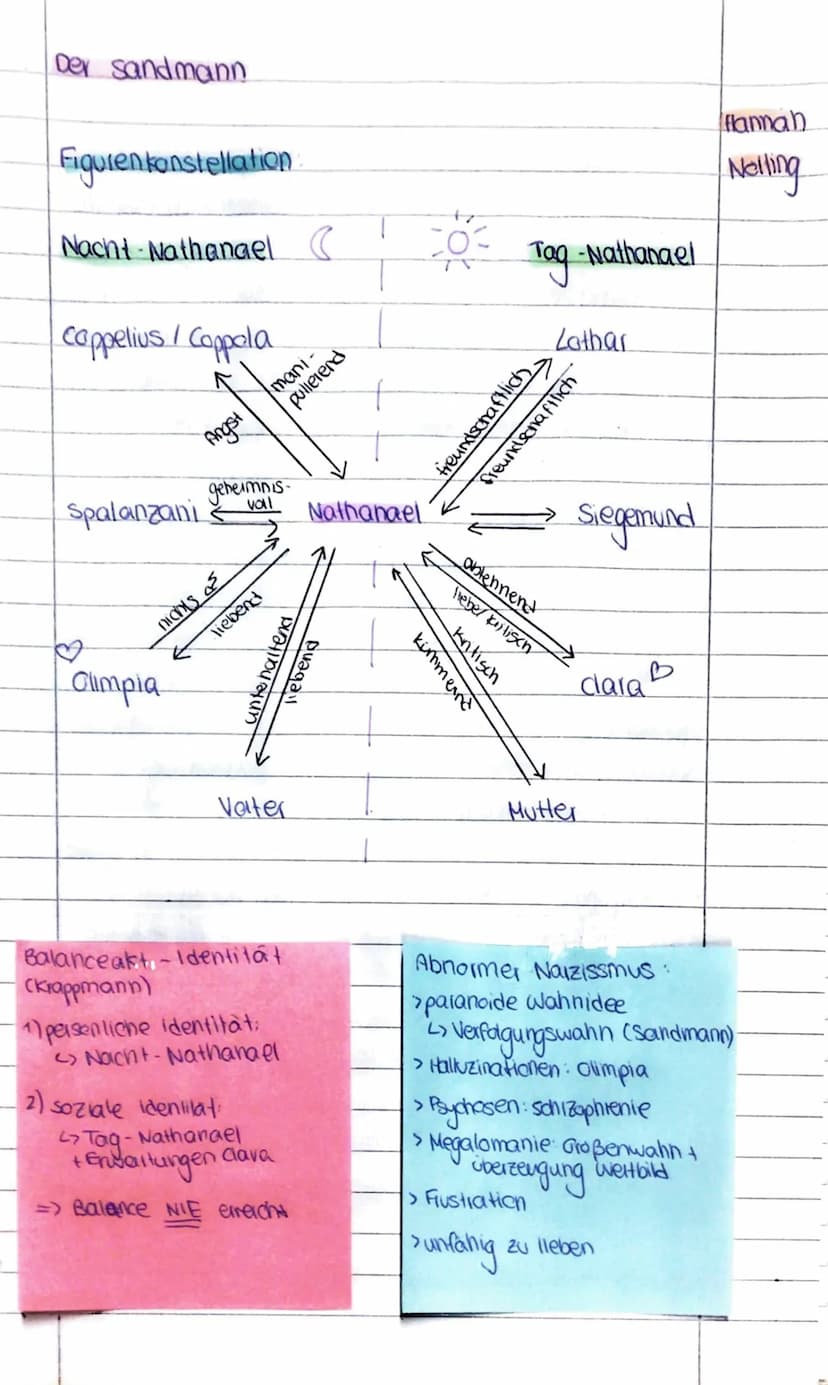 Der Sandmann
Hannah
Nelling
Figurenkonstellation:
Nacht-Nathanael
Tag-Nathanael
Coppelius / Coppola
Lothar
mani-
pulierend
Angst
freundschaftlich
freundschaftlich
geheimnis-
vol
Spalanzani
Nathanael
Siegemund
nichts da
liebend
ablehnend
liebe/kritisch
Olimpia
unterhaltend
liebend
kritisch
kümmernd
Clara
Vater
Mutter
Balanceakt-Identität
(Krappmann)
1) persönliche Identität:
↳ Nacht-Nathanael
2) soziale Identität:
↳ Tag-Nathanael
+ Erwartungen Clara
=> Balance NIE erreicht
Abnormer Narzissmus:
> paranoide Wahnidee
↳ Verfolgungswahn (Sandmann)
> Halluzinationen: Olimpia
> Psychosen: Schizophrenie
> Megalomanie: Größenwahn +
Überzeugung Weltbild
> Frustration
> unfähig zu lieben